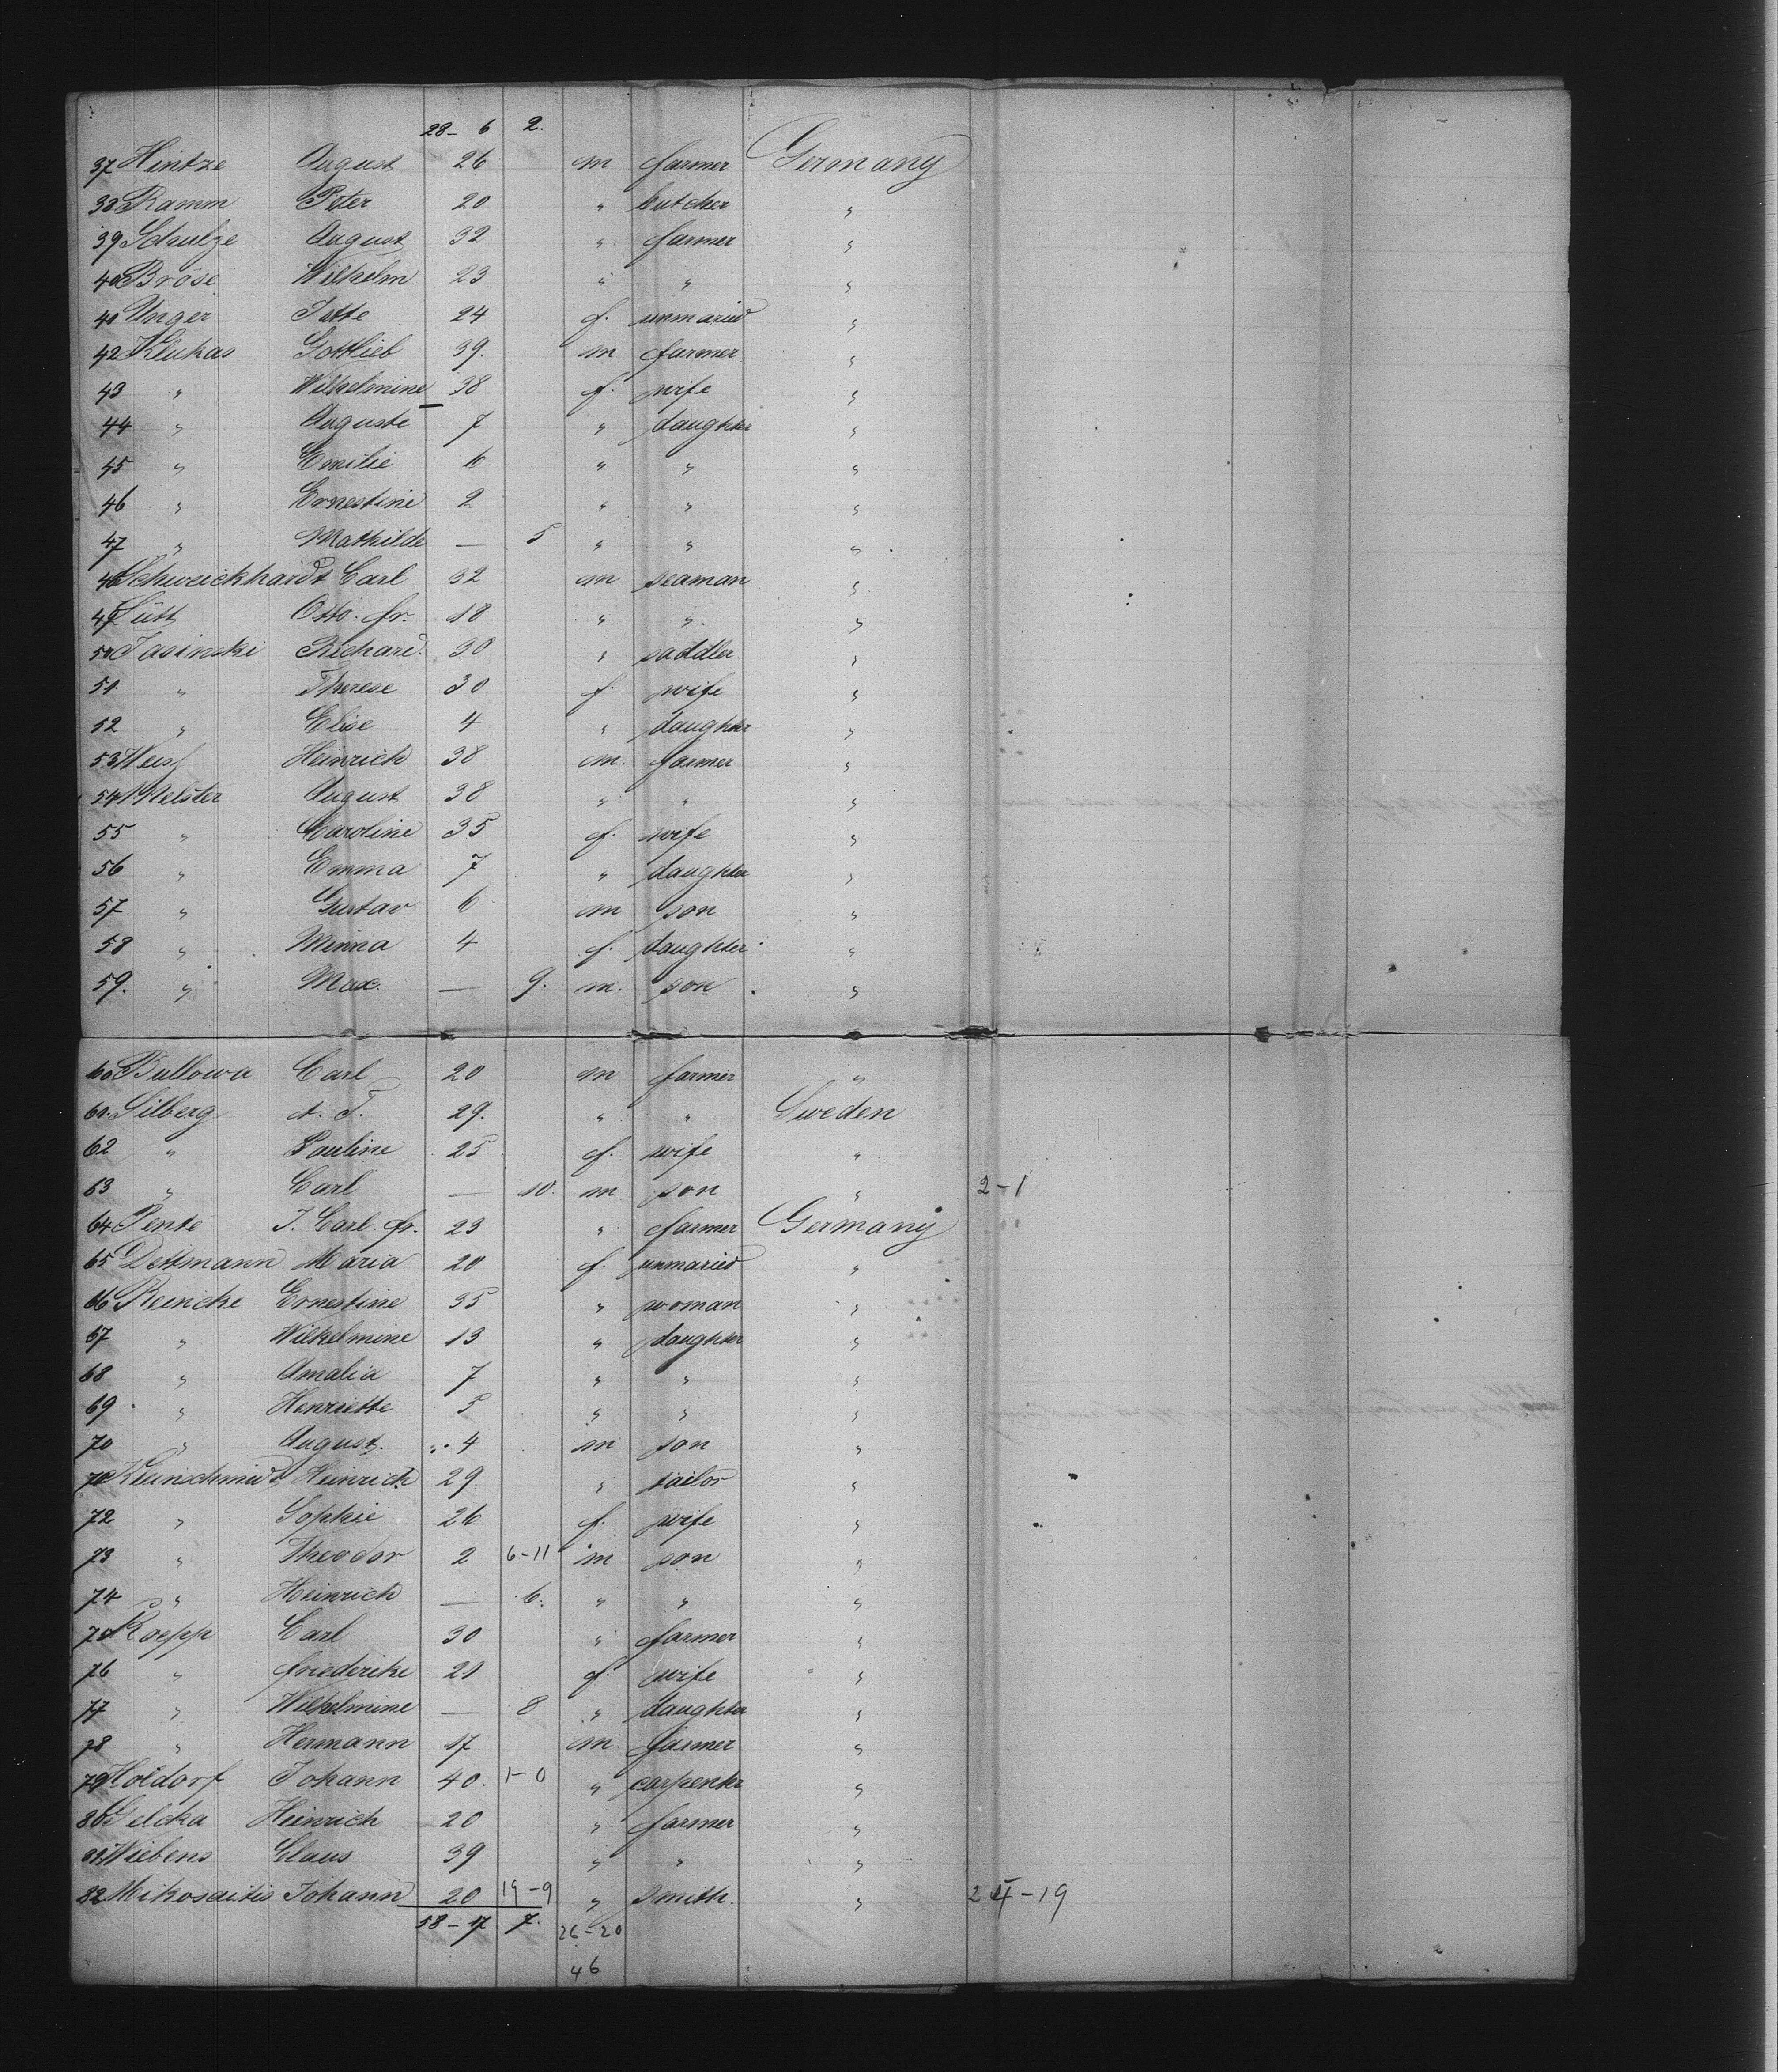 28 – 6 2.
37 Hintze August 26 m farmer Germany
38 Ramm Peter 20 " butcher "
39 Schulze August 32 " farmer "
40 Bröse Wilhelm 23 " " "
41 Unger Jette 24 f. unmaried "
42 Klukas Gottlieb 39. m farmer "
43 " Wilhelmine 38 f. wife "
44 " Auguste 7 " daughter "
45 " Emilie 6 " " "
46 " Ernestine 2 " " "
47 " Mathilde — 5 " " "
48 Schweickhardt Carl 32 m seaman "
49 Lütt Otto. fr. 18 " " "
50 Jasinski Richard. 30 " saddler "
51 " Therese 30 f. wife "
52 " Elise 4 " daughter "
53 Heinrich 38 m. farmer "
54 August 38 " " "
55 " Caroline 35 f. wife "
56 " Emma 7 " daughter "
57 " Gustav 6 m son "
58 " Minna 4 f. daughter "
59. " Max. — 9. m. son "
60 Bullowa Carl 20 m farmer "
61. Silberg A. T. 29. " " Sweden
62 " Pauline 25 f. wife "
63 " Carl — 10. m son " 2-1
64 Pente J. Carl fr. 23 " farmer Germany
65 Dettmann Maria 20 f. unmaried "
66 Reincke Ernestine 35 " woman "
67 " Wilhelmine 13 " daughter "
68 " Amalia 7 " " "
69 " Henriette 5 " " "
70 " August. 4 m son "
71 Kleinschmidt Heinrich 29. " tailor "
72 " Sophie 26 f. wife "
73 " Theodor 2 6-11 m son "
74 " Heinrich — 6. " " "
75 Koepp Carl 30 " farmer "
76 " Friederike 21 f. wife "
77 " Wilhelmine — 8 " daughter "
78 " Hermann 17 m. farmer "
79 Holdorf Johann 40. 1-0 " carpenter "
80 Heinrich 20 " farmer "
81 Wiebens Claus 39 " " "
82 Mikosaitis Johann 20 19-9 " smith. " 24-19
58 – 17 7. 26-20
46